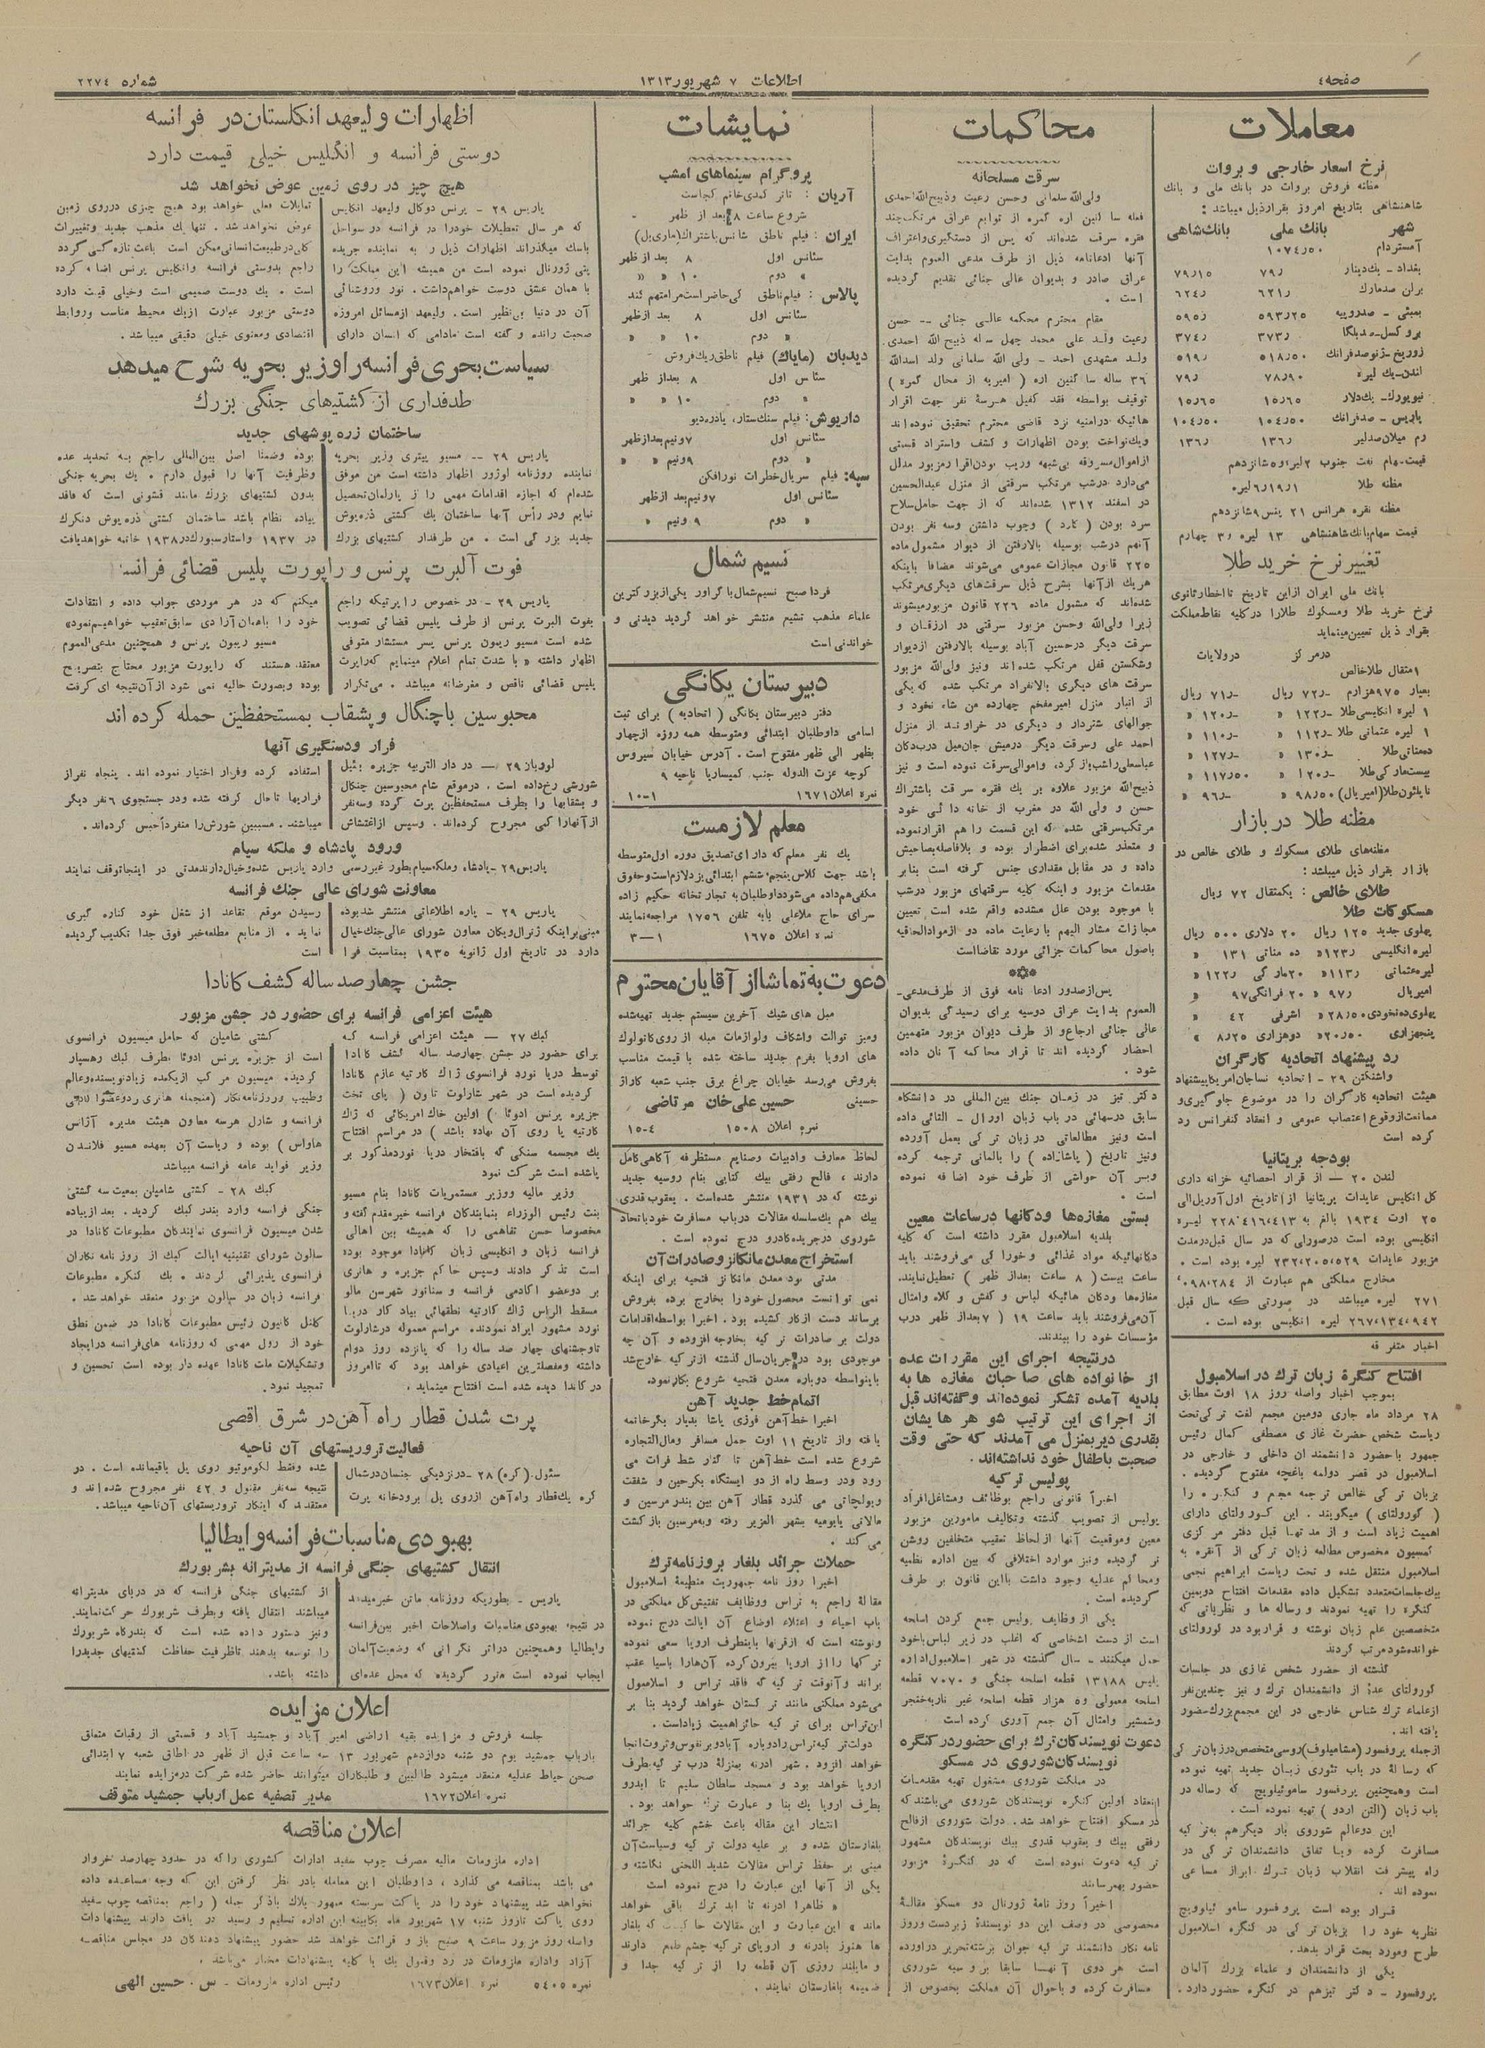 صفحه ٤
اطلاعات ٧ شهریور ١٣١٣
شماره ٢٢٧٤
معاملات
نرخ اسعار خارجی و بروات
مظنه فروش بروات در بانك ملی و بانك
شاهنشاهی بتاریخ امروز بقرار ذیل میباشد :
شهر بانك ملی بانك شاهی
آمستردام ١٠٧٤٫٥٠
بغداد - یك دینار ٧٩٫ ٧٩٫١٥
برلن صدمارك ٦٢١٫ ٦٢٤٫
بمبئی - صدروپیه ٥٩٣٫٢٥ ٥٩٥٫
بروکسل - صدبلگا ٣٧٣٫ ٣٧٤٫
زوریخ - ژنو صدفرانك ٥١٨٫٥٠ ٥١٩٫
لندن - یك لیره ٧٨٫٩٠ ٧٩٫
نیویورك - یك دلار ١٥٫٦٥ ١٥٫٦٥
پاریس - صدفرانك ١٠٤٫٥٠ ١٠٤٫٥٠
رم میلان صدلیر ١٣٦٫ ١٣٦٫
قیمت سهام نفت جنوب ٢ لیره و ٥ شانزدهم
مظنه طلا ٦٫١٩٫١ لیره
مظنه نقره هر انس ٢١ پنس ٩ شانزدهم
قیمت سهام بانك شاهنشاهی ١٣ لیره ٣٫ چهارم
تغییر نرخ خرید طلا
بانك ملی ایران از این تاریخ تا اخطار ثانوی
نرخ خرید طلا و مسکوك طلا را در کلیه نقاط مملکت
بقرار ذیل تعیین مینماید
در مرکز در ولایات
١ مثقال طلا خالص
بعیار ٩٧٥ هزارم ٧٢٫- ریال ٧١٫- ریال
١ لیره انگلیسی طلا ١٢٢٫- « ١٢٠٫- «
١ لیره عثمانی طلا ١١٢٫- « ١١٠٫- «
ده مناتی طلا ١٣٠٫- « ١٢٧٫- «
بیست مارکی طلا ١٢٠٫- « ١١٧٫٥٠ «
ناپلئون طلا (امپریال) ٩٨٫٥٠ « ٩٦٫- «
مظنه طلا در بازار
مظنه‌های طلای مسکوك و طلای خالص در
بازار بقرار ذیل میباشد :
طلای خالص : یکمثقال ٧٢ ریال
مسکوکات طلا
پهلوی جدید ١٢٥ ریال ٢٠ دلاری ٥٠٠ ریال
لیره انگلیسی ١٢٣٫ « ده مناتی ١٣١ «
لیره عثمانی ١١٣٫ « ٢٠ مارکی ١٢٢٫ «
امپریال ٩٧٫ « ٢٠ فرانکی ٩٧ «
پهلوی ده نخودی ٢٨٫٥٠ « اشرفی ٤٢ «
پنجهزاری ٢٠٫٥٠ « دوهزاری ٨٫٢٥ «
رد پیشنهاد اتحادیه کارگران
واشنگتن ٢٩ - اتحادیه نساجان امریکا پیشنهاد
هیئت اتحادیه کارگران را در موضوع جلوگیری و
ممانعت از وقوع اعتصاب عمومی و انعقاد کنفرانس رد
کرده است
بودجه بریتانیا
لندن ٢٠ - از قرار احصائیه خزانه داری
کل انگلیس عایدات بریتانیا از تاریخ اول آوریل الی
٢٥ اوت ١٩٣٤ بالغ به ٢٢٨،٤١٦،٤١٣ لیره
انگلیسی بوده است در صورتی که در سال قبل در مدت
مزبور عایدات ٢٣٢،٢٠٥،٥٢٩ لیره بوده است .
مخارج مملکتی هم عبارت از ٠٩٨،٢٨٤،
٢٧١ لیره میباشد در صورتی که سال قبل
٢٦٧،١٣٤،٩٤٢ لیره انگلیسی بوده است .
اخبار متفرقه
افتتاح کنگرهٔ زبان ترك در اسلامبول
بموجب اخبار واصله روز ١٨ اوت مطابق
٢٨ مرداد ماه جاری دومین مجمع لغت ترکی تحت
ریاست شخص حضرت غازی مصطفی کمال رئیس
جمهور با حضور دانشمندان داخلی و خارجی در
اسلامبول در قصر دولمه باغچه مفتوح گردید .
بزبان ترکی خالص ترجمه مجمع و کنگره را
( کورولتای ) میگویند . این کورولتای دارای
اهمیت زیاد است و از مدتها قبل دفتر مرکزی
کمسیون مخصوص مطالعه زبان ترکی از آنقره به
اسلامبول منتقل شده و تحت ریاست ابراهیم نجمی
بیك جلسات متعدد تشکیل داده مقدمات افتتاح دومین
کنگره را تهیه نمودند و رساله ها و نظریاتی که
متخصصین علم زبان نوشته و قرار بود در کورولتای
خوانده شود مرتب کردند
گذشته از حضور شخص غازی در جلسات
کورولتای عدهٔ از دانشمندان ترك و نیز چندین نفر
از علماء ترك شناس خارجی در این مجمع بزرك حضور
یافته اند .
از جمله پروفسور (مشامیلوف) روسی متخصص در زبان ترکی
که رسالهٔ در باب تئوری زبان جدید تهیه نموده
است و همچنین پرفسور ساموئیلویچ که رساله در
باب زبان (التن اردو ) تهیه نموده است .
این دو عالم شوروی بار دیگر هم به ترکیه
مسافرت کرده و با تفاق دانشمندان ترکی در
راه پیشرفت انقلاب زبان ترك ابراز مساعی
نموده اند .
قرار بوده است پروفسور ساموئیلوویچ
نظریه خود را بزبان ترکی در کنگره اسلامبول
طرح و مورد بحث قرار بدهد .
یکی از دانشمندان و علماء بزرك آلمان
پروفسور - دکتر تیزهم در کنگره حضور دارد .
محاکمات
سرقت مسلحانه
ولی‌الله سلمانی وحسن رعیت وذبیح‌الله احمدی
فعله ساکنین اره کمره از توابع عراق مرتکب چند
فقره سرقت شده‌اند که پس از دستگیری و اعتراف
آنها ادعانامه ذیل از طرف مدعی العموم بدایت
عراق صادر و بدیوان عالی جنائی تقدیم گردیده
است .
مقام محترم محکمه عالی جنائی -- حسن
رعیت ولد علی محمد چهل ساله ذبیح الله احمدی
ولد مشهدی احمد - ولی الله سلمانی ولد اسدالله
٣٦ ساله ساکنین اره ( امیریه از محال کمره )
توقیف بواسطه فقد کفیل هر سهٔ نفر جهت اقرار
هائیکه در امنیه نزد قاضی محترم تحقیق نموده‌اند
و یك نواخت بودن اظهارات و کشف و استرداد قسمتی
از اموال مسروقه بی‌شبهه و ریب بودن اقرار مزبور مدلل
می‌دارد درشب مرتکب سرقتی از منزل عبدالحسین
در اسفند ١٣١٢ شده‌اند که از جهت حامل سلاح
سرد بودن ( کارد ) وجوب داشتن وسه نفر بودن
آنهم درشب بوسیله بالارفتن از دیوار مشمول ماده
٢٢٥ قانون مجازات عمومی می‌شوند مضافا باینکه
هریك از آنها بشرح ذیل سرقت‌های دیگری مرتکب
شده‌اند که مشمول ماده ٢٢٦ قانون مزبور میشوند
زیرا ولی‌الله وحسن مزبور سرقتی در ارزقان و
سرقت دیگر در حسین آباد بوسیله بالارفتن از دیوار
و شکستن قفل مرتکب شده‌اند ونیز ولی‌الله مزبور
سرقت های دیگری بالانفراد مرتکب شده که یکی
از انبار منزل امیر مفخم چهارده من شاه نخود و
جوالهای شتردار و دیگری در خراوند از منزل
احمد علی وسرقت دیگر درمیش جان میل درب دکان
عباسعلی راشب باز کرده واموالی سرقت نموده است و نیز
ذبیح‌الله مزبور علاوه بر یك فقره سرقت باشتراك
حسن و ولی الله در مغرب از خانه دائی خود
مرتکب سرقتی شده که این قسمت را هم اقرار نموده
و متعذر شده برای اضطرار بوده و بلافاصله بصاحبش
داده و در مقابل مقداری جنس گرفته است بنابر
مقدمات مزبور و اینکه کلیه سرقتهای مزبور درشب
با موجود بودن علل مشدده واقع شده است تعیین
مجازات مشار الیهم با رعایت ماده دو از مواد الحاقیه
باصول محاکمات جزائی مورد تقاضا است
پس از صدور ادعا نامه فوق از طرف مدعی-
العموم بدایت عراق دوسیه برای رسیدگی بدیوان
عالی جنائی ارجاع و از طرف دیوان مزبور متهمین
احضار گردیده اند تا قرار محاکمه آنان داده
شود .
دکتر تیز در زمان جنك بین‌المللی در دانشگاه
سابق درسهائی در باب زبان اورال - التائی داده
است ونیز مطالعاتی در زبان ترکی بعمل آورده
ونیز تاریخ ( پاشازاده ) را بالمانی ترجمه کرده
وبر آن حواشی از طرف خود اضافه نموده
است .
بستن مغازه‌ها ودکانها درساعات معین
بلدیه اسلامبول مقرر داشته است که کلیه
دکانهائیکه مواد غذائی و خوراکی می‌فروشند باید
ساعت بیست ( ٨ ساعت بعداز ظهر ) تعطیل نمایند.
مغازه‌ها ودکان هائیکه لباس و کفش و کلاه و امثال
آن می‌فروشند باید ساعت ١٩ ( ٧ بعداز ظهر درب
مؤسسات خود را ببندند.
درنتیجه اجرای این مقررات عده
از خانواده های صاحبان مغازه ها به
بلدیه آمده تشکر نموده‌اند و گفته‌اند قبل
از اجرای این ترتیب شوهرهایشان
بقدری دیر بمنزل می آمدند که حتی وقت
صحبت با اطفال خود نداشته‌اند .
پولیس ترکیه
اخیراً قانونی راجع بوظائف و مشاغل افراد
پولیس از تصویب گذشته و تکالیف مامورین مزبور
معین و موقعیت آنها از لحاظ تعقیب متخلفین روشن
تر گردیده ونیز موارد اختلافی که بین اداره نظمیه
ومحاکم عدلیه وجود داشت بااین قانون بر طرف
گردیده است .
یکی از وظایف پولیس جمع کردن اسلحه
است از دست اشخاصی که اغلب در زیر لباس باخود
حمل میکنند - سال گذشته در شهر اسلامبول اداره
پلیس ١٣١٨٨ قطعه اسلحه جنگی و ٧٠٧٠ قطعه
اسلحه معمولی و ٥ هزار قطعه اسلحه غیر ناریه خنجر
وشمشیر وامثال آن جمع آوری کرده است
دعوت نویسندگان ترك برای حضور در کنگره
نویسندگان شوروی در مسکو
در مملکت شوروی مشغول تهیه مقدمات
انعقاد اولین کنگره نویسندگان شوروی می‌باشند که
در مسکو افتتاح خواهد شد. دولت شوروی از فالح
رفقی بیك و یعقوب قدری بیك نویسندگان مشهور
ترکیه دعوت نموده است که در کنگرهٔ مزبور
حضور بهمرسانند
اخیراً روز نامهٔ ژورنال دو مسکو مقالهٔ
مخصوصی در وصف این دو نویسندهٔ زبردست و روز
نامه نگار دانشمند ترکیه جوان برشته تحریر در آورده
است هر دوی آنها سابقا بروسیه شوروی
مسافرت کرده و باحوال آن مملکت بخصوص از
نمایشات
پروگرام سینماهای امشب
آریان : تاتر کمدی خانم کجاست
شروع ساعت ٨ بعد از ظهر
ایران : فیلم ناطق شانس باشتراك (ماری بل)
سئانس اول ٨ بعد از ظهر
« دوم ١٠ « «
پالاس : فیلم ناطق کی حاضر است مرا متهم کند
سئانس اول ٨ بعد از ظهر
« دوم ١٠ « «
دیدبان (مایاك) فیلم ناطق ریك فروش
سئانس اول ٨ بعد از ظهر
« دوم ١٠ « «
داریوش: فیلم سنك ستار، یا دره دیو
سئانس اول ٧ ونیم بعد از ظهر
« دوم ٩ ونیم « «
سپه: فیلم سریال خطرات نورافکن
سئانس اول ٧ ونیم بعد از ظهر
« دوم ٩ ونیم « «
نسیم شمال
فردا صبح نسیم شمال با گراور یکی از بزرگترین
علماء مذهب تشیم منتشر خواهد گردید دیدنی و
خواندنی است
دبیرستان یگانگی
دفتر دبیرستان یگانگی ( اتحادیه ) برای ثبت
اسامی داوطلبان ابتدائی ومتوسطه همه روزه از چهار
بظهر الی ظهر مفتوح است . آدرس خیابان سیروس
کوچه عزت الدوله جنب کمیساریا ناحیه ٩
نمره اعلان ١٦٧١ ١-١٠
معلم لازمست
یك نفر معلم که دارای تصدیق دوره اول متوسطه
باشد جهت کلاس پنجم، ششم ابتدائی یزد لازم است و حقوق
مکفی هم داده می‌شود داوطلبان به تجارتخانه حکیم زاده
سرای حاج ملاعلی یا به تلفن ١٧٥٦ مراجعه نمایند
نمره اعلان ١٦٧٥ ١-٣
دعوت به تماشا از آقایان محترم
مبل های شیك آخرین سیستم جدید تهیه شده
ومیز توالت واشکاف ولوازمات مبله از روی کاتولوك
های اروپا بفرم جدید ساخته شده با قیمت مناسب
بفروش می‌رسد خیابان چراغ برق جنب شعبه کاراژ
حسینی حسین علی خان مرتاضی
نمره اعلان ١٥٠٨ ٤-١٥
لحاظ معارف وادبیات وصنایع مستظرفه آگاهی کامل
دارند ، فالح رفقی بیك کتابی بنام روسیه جدید
نوشته که در ١٩٣١ منتشر شده‌است . یعقوب قدری
بیك هم یك سلسله مقالات درباب مسافرت خود باتحاد
شوروی در جریده کادرو درج نموده است .
استخراج معدن مانگانز و صادرات آن
مدتی بود معدن مانگانز فتحیه برای اینکه
نمی توانست محصول خود را بخارج برده بفروش
برساند دست ازکار کشیده بود . اخیرا بواسطه اقدامات
دولت بر صادرات ترکیه بخارجه افزوده و آن چه
موجودی بود در جریان سال گذشته از ترکیه خارج شد
باینواسطه دوباره معدن فتحیه شروع بکار نمود.
اتمام خط جدید آهن
اخیرا خط آهن فوزی پاشا بدیار بکر خاتمه
یافته و از تاریخ ١١ اوت حمل مسافر ومال التجاره
شروع شده است خط آهن تا کنار شط فرات می
رود ودر وسط راه از دو ایستگاه بکرحین و شفقت
وبولچاتی می گذرد قطار آهن بین بندر مرسین و
مالاتی یا بومیه بشهر العزیز رفته و به مرسین باز گشت
می‌کند .
حملات جرائد بلغار بروزنامه ترك
اخیرا روز نامه جمهوریت منطبعهٔ اسلامبول
مقالهٔ راجع به تراس ووظایف تفتیش کل مملکتی در
باب احیاء و اعتلاء اوضاع آن ایالت درج نموده
ونوشته است که از قرنها باینطرف اروپا سعی نموده
ترکها را از اروپا بیرون کرده آن‌هارا باسیا عقب
براند و آنوقت ترکیه که فاقد تراس و اسلامبول
می‌شود مملکتی مانند ترکستان خواهد گردید بنا بر
این تراس برای ترکیه حائز اهمیت زیاد است .
دولت ترکیه تراس را دوباره آباد و بر نفوس و ثروت انجا
خواهد افزود . شهر ادرنه بمنزلهٔ درب ترکیه بطرف
اروپا خواهد بود و مسجد سلطان سلیم تا ابد رو
بطرف اروپا یك بنا و عمارت ترك خواهد بود .
انتشار این مقاله باعث خشم کلیه جرائد
بلغارستان شده و بر علیه دولت ترکیه و سیاست آن
مبنی بر حفظ تراس مقالات شدید اللحنی نگاشته و
یکی از آنها این عبارت را درج نموده است
« ظاهرا ادرنه تا ابد ترك باقی خواهد
ماند » این عبارت و این مقالات حاکیست که بلغار
ها هنوز بادرنه و اروپای ترکیه چشم طمع دارند
و مایلند روزی آن قطعه را از ترکیه جدا و
ضمیمه بلغارستان نمایند .
اظهارات ولیعهد انگلستان در فرانسه
دوستی فرانسه و انگلیس خیلی قیمت دارد
هیچ چیز در روی زمین عوض نخواهد شد
پاریس ٢٩ - پرنس دوگال ولیعهد انگلیس
که هر سال تعطیلات خود را در فرانسه در سواحل
باسك میگذراند اظهارات ذیل را به نماینده جریده
پتی ژورنال نموده است من همیشه این مملکت را
با همان عشق دوست خواهم داشت . نور وروشنائی
آن در دنیا بی نظیر است . ولیعهد از مسائل امروزه
صحبت رانده و گفته است مادامی که انسان دارای
تمایلات فعلی خواهد بود هیچ چیزی در روی زمین
عوض نخواهد شد . تنها یك مذهب جدید و تغییرات
کلی در طبیعت انسانی ممکن است باعث تازه گی گردد
راجع بدوستی فرانسه وانگلیس پرنس اضافه کرده
است . یك دوست صمیمی است وخیلی قیمت دارد
دوستی مزبور عبارت از یك محیط مناسب وروابط
اقتصادی و معنوی خیلی دقیقی میباشد .
سیاست بحری فرانسه را وزیر بحریه شرح میدهد
طرفداری از کشتیهای جنگی بزرك
ساختمان زره پوشهای جدید
پاریس ٢٩ -- مسیو پیتری وزیر بحریه
نماینده روزنامه لوژور اظهار داشته است من موفق
شده‌ام که اجازه اقدامات مهمی را از پارلمان تحصیل
نمایم ودر رأس آنها ساختمان یك کشتی ذره پوش
جدید بزرگی است . من طرفدار کشتیهای بزرك
بوده وضمنا اصل بین‌المللی راجع به تحدید عده
وظرفیت آنها را قبول دارم . یك بحریه جنگی
بدون کشتیهای بزرك مانند قشونی است که فاقد
پیاده نظام باشد ساختمان کشتی ذره پوش دنکرك
در ١٩٣٧ و استارسبورك در ١٩٣٨ خاتمه خواهد یافت
فوت آلبرت پرنس و راپورت پلیس قضائی فرانسه
پاریس ٢٩ - در خصوص راپرتیکه راجع
بفوت البرت پرنس از طرف پلیس قضائی تصویب
شده است مسیو ریمون پرنس پسر مستشار متوفی
اظهار داشته « با شدت تمام اعلام مینمایم که راپرت
پلیس قضائی ناقص و مغرضانه میباشد . می تکرار
میکنم که در هر موردی جواب داده و انتقادات
خود را باهمان آزادی سابق تعقیب خواهیم نمود»
مسیو ریمون پرنس و همچنین مدعی العموم
معتقد هستند که راپورت مزبور محتاج بتصریح
بوده و بصورت حالیه نمی شود از آن نتیجه ای گرفت
محبوسین با چنگال و بشقاب بمستحفظین حمله کرده اند
فرار ودستگیری آنها
لوریان ٢٩ - در دار التربیه جزیره بئیل
شورشی رخ داده است . درموقع شام محبوسین چنگال
و بشقابها را بطرف مستحفظین پرت کرده وسه نفر
از آنهارا کمی مجروح کرده‌اند . وسپس از اغتشاش
استفاده کرده وفرار اختیار نموده اند . پنجاه نفر از
فراریها تا حال گرفته شده ودر جستجوی ٦ نفر دیگر
میباشند . مسببین شورش را منفرداً حبس کرده‌اند .
ورود پادشاه و ملکه سیام
پاریس ٢٩ - پادشاه وملکه سیام بطور غیر رسمی وارد پاریس شده و خیال دارند مدتی در اینجا توقف نمایند
معاونت شورای عالی جنك فرانسه
پاریس ٢٩ - پاره اطلاعاتی منتشر شده بود
مبنی بر اینکه ژنرال ویگان معاون شورای عالی جنك خیال
دارد در تاریخ اول ژانویه ١٩٣٥ بمناسبت فرا
رسیدن موقع تقاعد از شغل خود کناره گیری
نماید . از منابع مطلعه خبر فوق جدا تکذیب گردیده
است
جشن چهارصد ساله کشف کانادا
هیئت اعزامی فرانسه برای حضور در جشن مزبور
کبك ٢٧ - هیئت اعزامی فرانسه که
برای حضور در جشن چهارصد ساله کشف کانادا
توسط دریا نورد فرانسوی ژاك کارتیه عازم کانادا
گردیده است در شهر شارلوت تاون ( پای تخت
جزیره پرنس ادوئا ) اولین خاك امریکائی که ژاك
کارتیه پا روی آن نهاده باشد ) در مراسم افتتاح
یك مجسمه سنگی که بافتخار دریا نورد مذکور بر
پاشده است شرکت نمود
وزیر مالیه و وزیر مستمریات کانادا بنام مسیو
بنت رئیس الوزراء بنمایندگان فرانسه خیرمقدم گفته و
مخصوصا حسن تفاهمی را که همیشه بین اهالی
فرانسه زبان و انگلیسی زبان کانادا موجود بوده
است تذکر دادند وسپس حاکم جزیره و هانری
بردو عضو آکادمی فرانسه و سناتور شهر سن مالو
مسقط الراس ژاك کارتیه نطقهائی بیاد کار دریا
نورد مشهور ایراد نمودند. مراسم معموله در شارلوت
تاون جشنهای چهارصد ساله را که پانزده روز دوام
داشته ومفصلترین اعیادی خواهد بود که تا امروز
در کانادا دیده شده است افتتاح مینماید .
کشتی شامپلن که حامل میسیون فرانسوی
است از جزیره پرنس ادوئا بطرف کبك رهسپار
گردید. میسیون مرکب از یکعده زیاد نویسنده و عالم
وطبیب وروزنامه نگار (منجمله هانری بردو عضو آکادمی
فرانسه و شارل هرسه معاون هیئت مدیره آژانس
هاواس ) بوده و ریاست آن بعهده مسیو فلاندن
وزیر فواید عامه فرانسه میباشد
کبك ٢٨ - کشتی شامپلن بمعیت سه کشتی
جنگی فرانسه وارد بندر کبك گردید . بعد از پیاده
شدن میسیون فرانسوی نمایندگان مطبوعات کانادا در
سالون شورای تقنینیه ایالت کبك از روز نامه نگاران
فرانسوی پذیرائی کردند . یك کنگره مطبوعات
فرانسه زبان در سالون مزبور منعقد خواهد شد .
کلنل کانیون رئیس مطبوعات کانادا در ضمن نطق
خود از رول مهمی که روزنامه های فرانسه در ایجاد
وتشکیلات ملت کانادا عهده دار بوده است تحسین و
تمجید نمود .
پرت شدن قطار راه آهن در شرق اقصی
فعالیت تروریستهای آن ناحیه
سئول (کره) ٢٨ - در نزدیکی جنسان در شمال
کره یك قطار راه آهن از روی پل برودخانه پرت
شده و فقط لکوموتیو روی پل باقیمانده است . در
نتیجه سه نفر مقتول و ٤٢ نفر مجروح شده‌اند و
معتقدند که اینکار تروریستهای آن ناحیه میباشد .
بهبودی مناسبات فرانسه و ایطالیا
انتقال کشتیهای جنگی فرانسه از مدیترانه بشربورك
پاریس - بطوریکه روزنامه ماتن خبر میدهد
در نتیجه بهبودی مناسبات واصلاحات اخیر بین فرانسه
وایطالیا وهمچنین در اثر نگرانی که وضعیت آلمان
ایجاب نموده است مقرر گردیده که محل عده‌ای
از کشتیهای جنگی فرانسه که در دریای مدیترانه
میباشند انتقال یافته و بطرف شربورك حرکت نمایند.
ونیز دستور داده شده است که بندرگاه شربورك
را توسعه بدهند تا ظرفیت حفاظت کشتیهای جدید را
داشته باشد .
اعلان مزایده
جلسه فروش و مزایده بقیه اراضی امیر آباد و جمشید آباد و قسمتی از رقبات متعلق
بارباب جمشید یوم دو شنبه دوازدهم شهریور ١٣ سه ساعت قبل از ظهر در اطاق شعبه ٧ ابتدائی
صحن حیاط عدلیه منعقد میشود طالبین و طلبکاران میتوانند حاضر شده شرکت در مزایده نمایند
نمره اعلان ١٦٧٢ مدیر تصفیه عمل ارباب جمشید متوقف
اعلان مناقصه
اداره ملزومات مالیه مصرف چوب سفید ادارات کشوری را که در حدود چهارصد خروار
می باشد بمناقصه می گذارد ، داوطلبان این معامله بادر نظر گرفتن این که وجه مساعده داده
نخواهد شد پیشنهاد خود را در پاکت سربسته ممهور بلاك باذکر جمله ( راجع بمناقصه چوب سفید
روی پاکت تا روز شنبه ١٧ شهریور ماه بکابینه این اداره تسلیم و رسید دریافت دارند پیشنهادات
واصله روز مزبور ساعت ٩ صبح باز و قرائت خواهد شد حضور پیشنهاد دهندگان در مجلس مناقصه
آزاد واداره ملزومات در رد وقبول یك یا کلیه پیشنهادات مختار می‌باشد .
نمره ٥٤٠٥ نمره اعلان ١٦٧٣ رئیس اداره ملزومات - س . حسین الهی